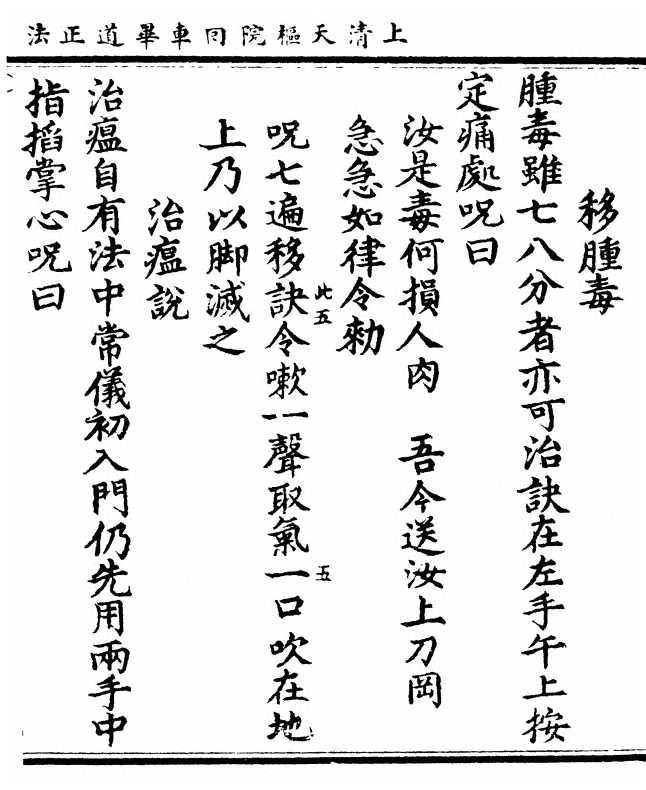 上清天樞院囘車畢道正法
移腫毒
腫毒雖七八分者亦可治訣在左手午上按
定痛處呪曰
汝是毒何損人肉　吾今送汝上刀岡
急急如律令勑
此五
五
呪七遍移訣令嗽一聲取氣一口吹在地
上乃以脚滅之
治瘟說
治瘟自有法中常儀初入門仍先用兩手中
指搯掌心呪曰